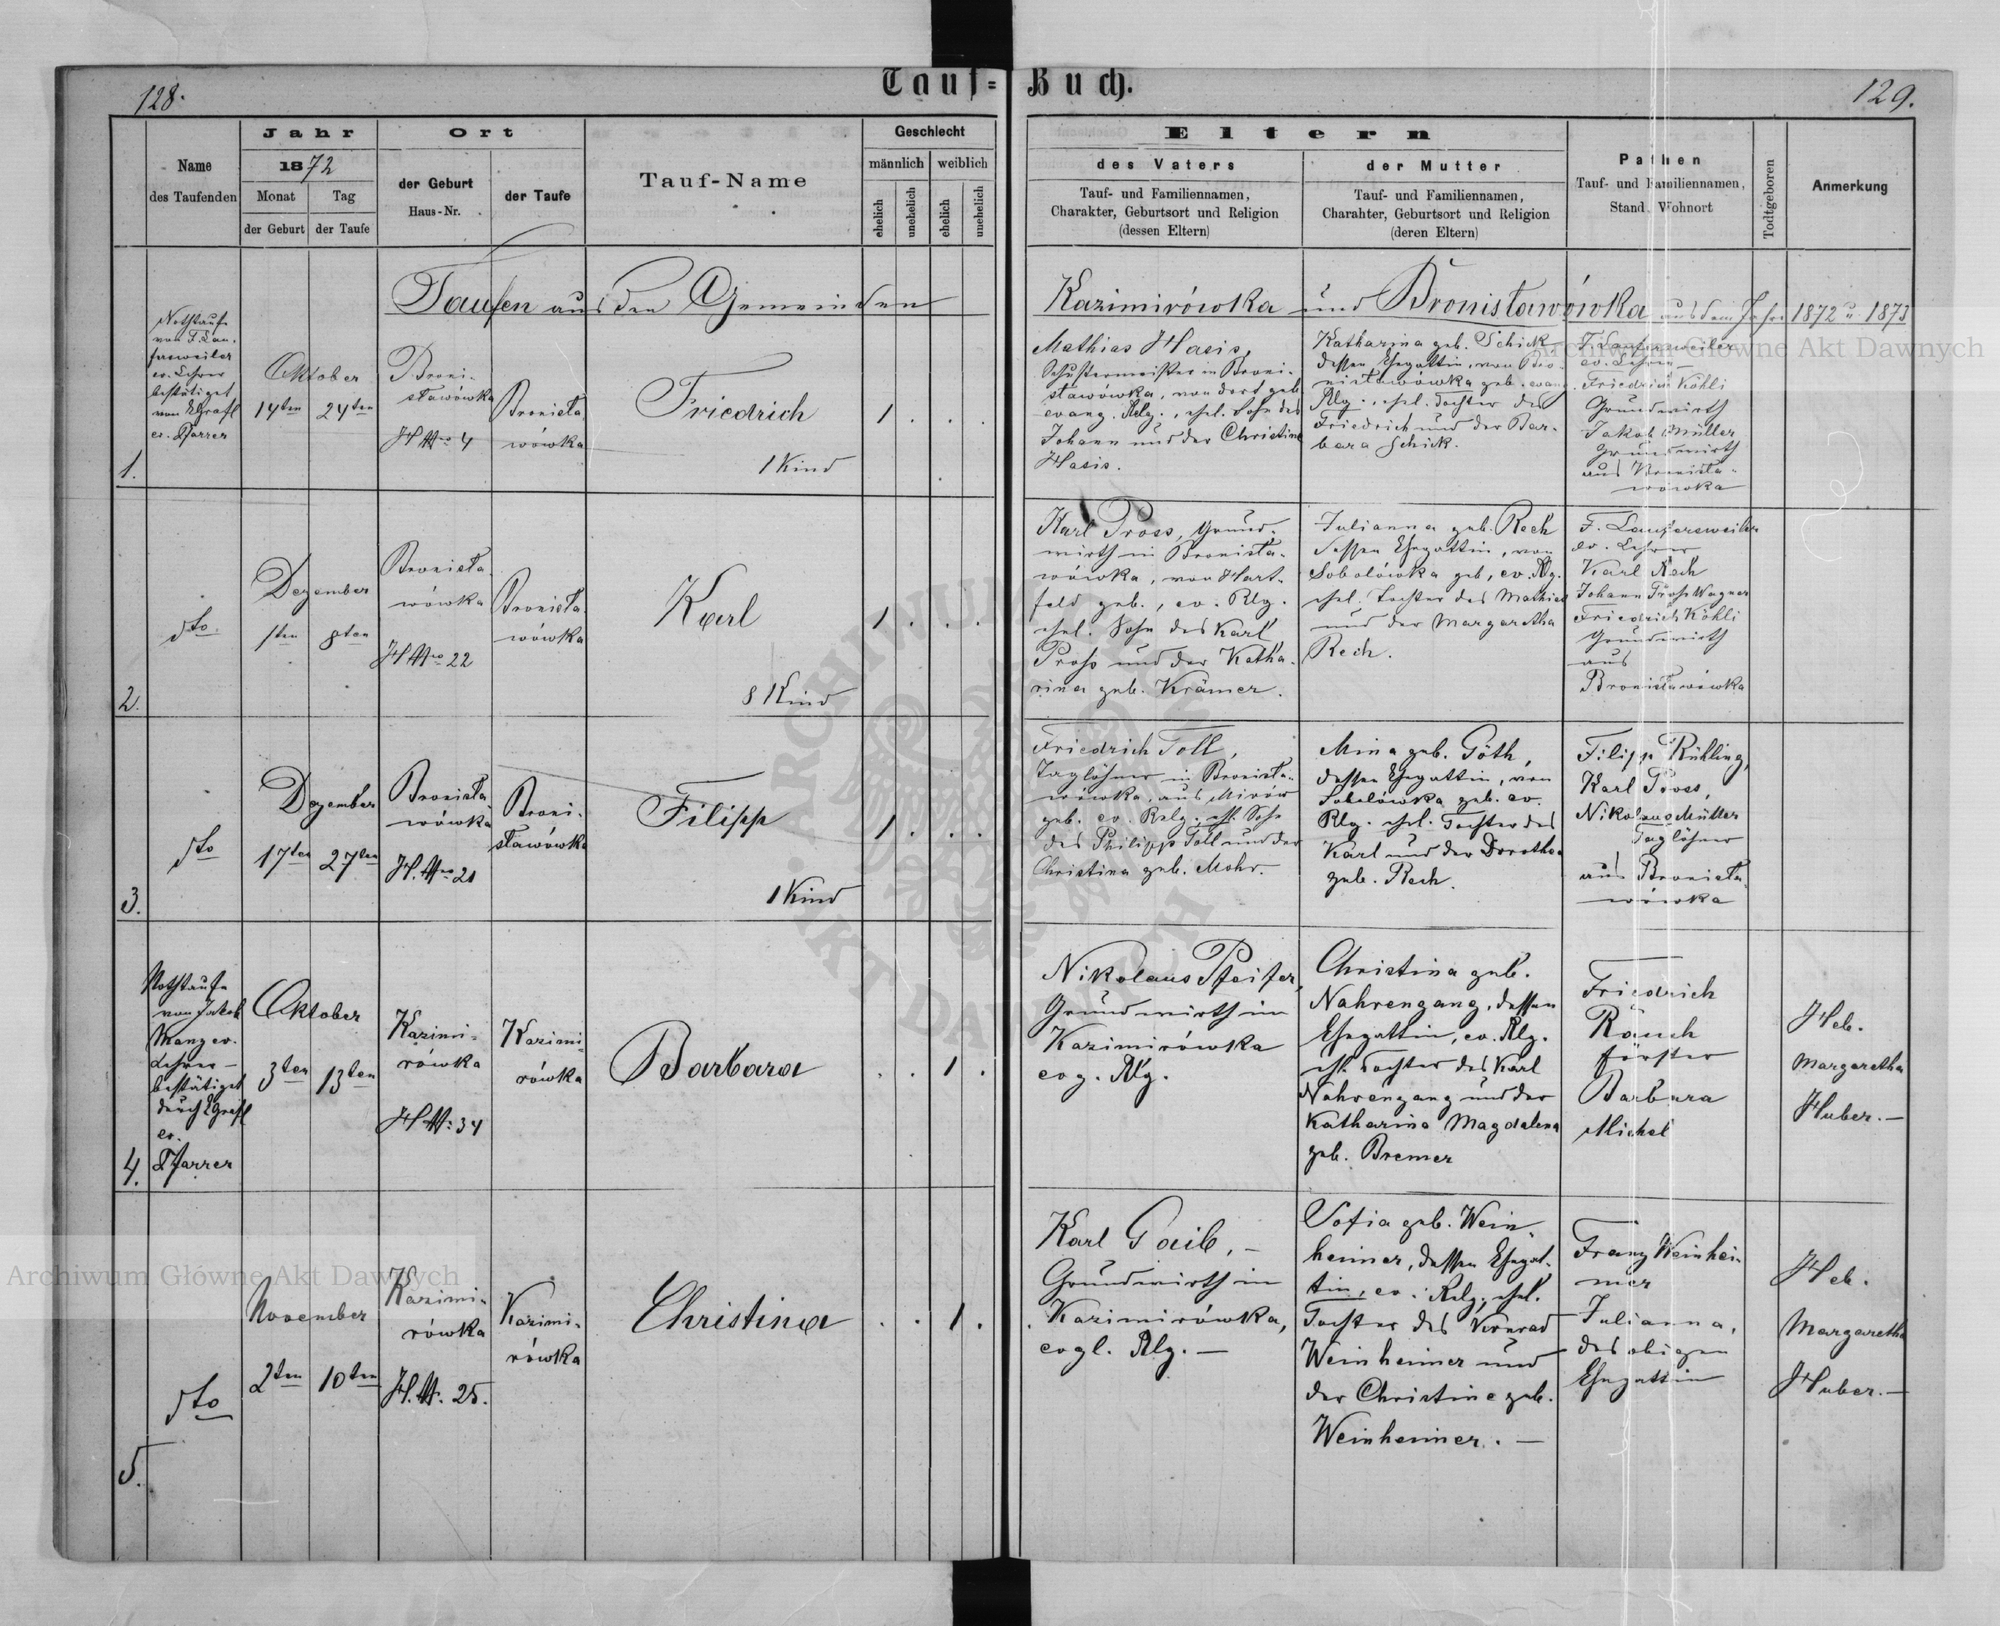 128.
Tauf=Buch.
129.
Name
des Taufenden
Jahr
1872
Monat
der Geburt
Tag
der Taufe
Ort
der Geburt
Haus-Nr.
der Taufe
Tauf-Name
Geschlecht
männlich
weiblich
ehelich
unehelich
ehelich
unehelich
Eltern
des Vaters
Tauf- und Familiennamen,
Charakter, Geburtsort und Religion
(dessen Eltern)
der Mutter
Tauf- und Familiennamen,
Charahter, Geburtsort und Religion
(deren Eltern)
Pathen
Tauf- und Familiennamen,
Stand, Wohnort
Todtgeboren
Anmerkung
Taufen aus den Gemeinden Kazimirówka und Bronisławówka aus dem Jahre 1872 u 1873
1.
Nothtaufe
von F. Lau-
fersweiler
ev. Lehrer
bestätiget
von EGrafl
ev. Pfarrer
Oktober
14ten
24ten
Broni-
sławówka
H Nro 4
Bronisła
wówka
Friedrich
1 Kind
1 . . .
Mathias Hasis,
Schustermeister in Broni-
sławówka, von dort geb
evang. Relg., ehel. Sohn des
Johann und der Christine
Hasis.
Katharina geb. Schick
dessen Ehegattin, von Bro-
nisławówka geb. evang.
Rlg., ehel. Tochter des
Friedrich und der Bar-
bara Schick.
F. Laufersweiler
ev. Lehrer
Friedrich Köhli
Grundwirth
Jakob Müller
Grundwirth
aus Bronisła-
wówka
2.
dto
Dezember
1ten
8ten
Bronisła
wówka
H Nro 22
Bronisła
wówka
Karl
8 Kind
1 . . .
Karl Pross, Grund-
wirth in Bronisła-
wówka, von Hart-
feld geb., ev. Rlg.
ehel. Sohn des Karl
Pross und der Katha-
rina geb. Krämer.
Julianna geb. Rech
dessen Ehegattin, von
Sobolówka geb, ev. Rlg.
ehel. Tochter des Mathias
und der Margaretha
Rech.
F. Laufersweiler
ev. Lehrer
Karl Rech
Johann Pross Wagner
Friedrich Köhli
Grundwirth
aus
Bronisławówka
3.
dto
Dezember
17ten
27ten
Bronisła
wówka
H. Nro 21
Broni-
sławówka
Filipp
1 Kind
1 . . .
Friedrich Toll,
Taglöhner in Bronisła-
wówka, aus Mirów
geb. ev. Relg. ehl. Sohn
des Philipp Toll und der
Christina geb. Mohr.
Mina geb. Göth,
dessen Ehegattin, von
Sobolówka geb. ev.
Rlg. ehel. Tochter des
Karl und der Dorothea
geb. Rech.
Filipp Rühling,
Karl Pross,
Nikolaus Müller
Taglöhner
aus Bronisła
wówka
4.
Nothtaufe
von Jakob
Mang ev.
Lehrer –
bestätiget
durch EGrafl
ev.
Pfarrer
Oktober
3ten
13ten
Kazimi-
rówka
H N: 34
Kazimi-
rówka
Barbara
. . 1 .
Nikolaus Pfeifer,
Grundwirth in
Kazimirówka
evg. Rlg.
Christina geb.
Nahrengang, dessen
Ehegattin, ev. Rlg.
ehl. Tochter des Karl
Nahrengang und der
Katharina Magdalena
geb. Bremer
Friedrich
Rauch
Förster
Barbara
Michel
Heb.
Margaretha
Huber. –
5.
dto
November
2ten
10ten
Kazimi-
rówka
H. N. 25.
Kazimi-
rówka
Christina
. . 1 .
Karl Gaib, –
Grundwirth in
Kazimirówka,
evgl. Rlg. –
Sofia geb. Wein
heimer, dessen Ehegat-
tin, ev. Relg; ehel.
Tochter des Konrad
Weinheimer und
der Christine geb.
Weinheimer. –
Franz Weinhei-
mer
Julianna,
des obigen
Ehegattin
Heb.
Margaretha
Huber. –
Archiwum Główne Akt Dawnych
Archiwum Główne Akt Dawnych
ARCHIWUM
AKT DAWNYCH